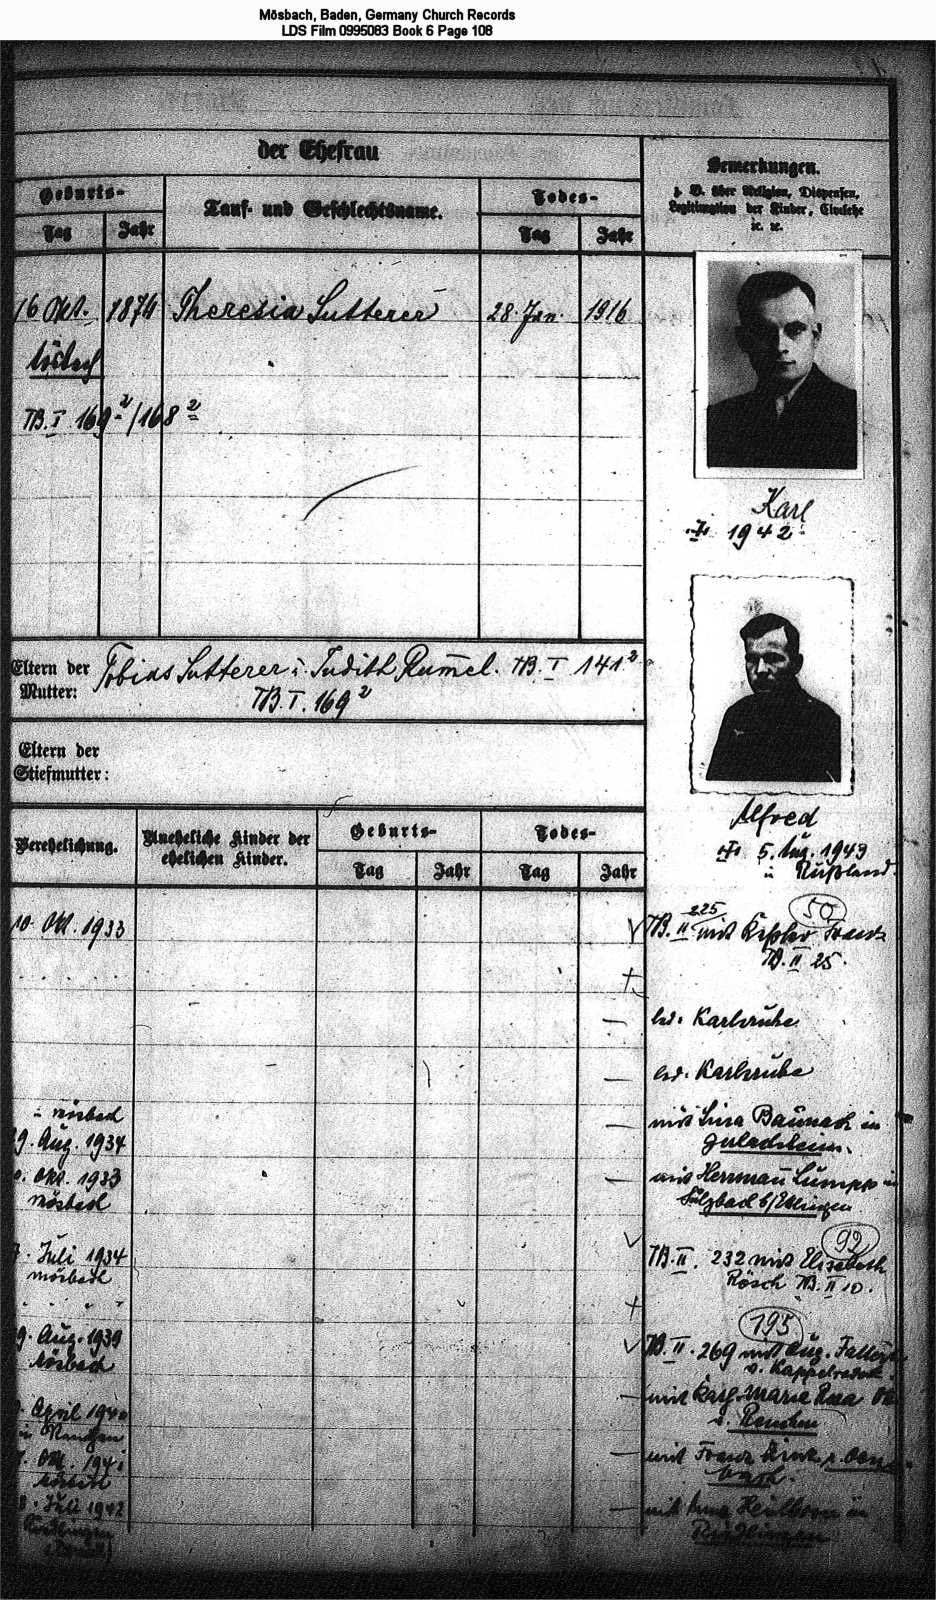 Mösbach, Baden, Germany Church Records
LDS Film 0995083 Book 6 Page 108
der Ehefrau
Bemerkungen.
z. B. über Religion, Dispensen,
Legitimation der Kinder, Civilehe
ꝛc. ꝛc.
Geburts-
Tauf- und Geschlechtsname.
Todes-
Tag
Jahr
Tag
Jahr
16 Okt. 1874 Theresia Sutterer 28. Jan. 1916
TB. I 169²/168²
Karl
1942
Eltern der Mutter: Tobias Sutterer u. Judith Rum̄el. TB. I 141²
TB. I. 169²
Eltern der Stiefmutter:
Alfred
5. Aug. 1943
in Rußland.
Verehelichung.
Uneheliche Kinder der ehelichen Kinder.
Geburts-
Todes-
Tag
Jahr
Tag
Jahr
10. Okt. 1933
TB. II 225 mit Keßler Franz 50
TB. II 25.
led. Karlsruhe
led. Karlsruhe
in Mösbach
29. Aug. 1934
mit Lina in
Okt. 1933
Mösbach
mit Hermann Lumpp in
Sulzbach b/Ettlingen
7. Juli 1934
Mösbach
TB. II. 232 mit Elisabeth 92
Rösch TB. II 10.
9. Aug. 1939
Mösbach
TB. II. 269 mit Aug. 195
v. Kappelrodeck
April 1940
in Renchen
mit Marie
v. Renchen
Okt. 1941
Mösbach
mit Franz
8. Juli 1942
mit in